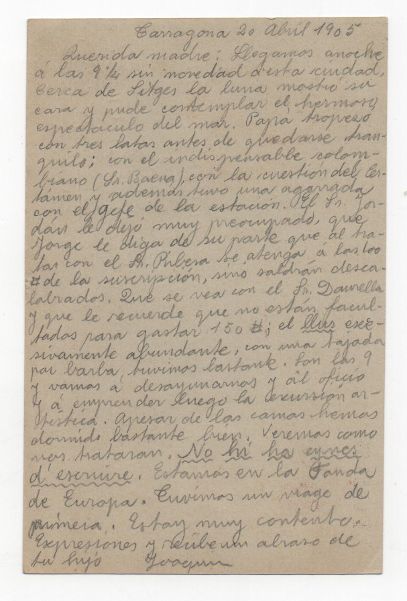 Tarragona 20 Abril 1905
Querida madre: Llegamos anoche
á las 9 1/2 sin novedad á esta ciudad,
cerca de Sitges la luna mostró su
cara y pude contemplar el hermoso
espectaculo del mar. Papa tropezó
con tres latas antes de quedarse tran-
quilo; con el indispensable colom-
biano (Sr. Baena), con la cuestión del Cer-
támen y ademas tuvo una agarrada
con el Jefe de la estación. El Sr. Jor-
dán le dejó muy preocupado, que
Jorge le diga de su parte que al tra-
tar con el Sr. Ribera se atenga á las 100
de la suscripción, sino saldrán desca-
labrados. Que se vea con el Sr.
y que le recuerde que no están facul-
tados para gastar 150 ; el llus exce-
sivamente abundante, con una tajada
por barba tuvimos bastante. Son las 9
y vamos a desayunarnos y al oficio
y á emprender luego la excursion ar-
tistica. Apesar de las camas hemos
dormido bastante bien. Veremos como
nos trataran. No hi ha
d'escriure. Estamos en la Fonda
de Europa. Tuvimos un viage de
primera. Estoy muy contento.
Expresiones y recibe un abraso de
tu hijo Joaquin